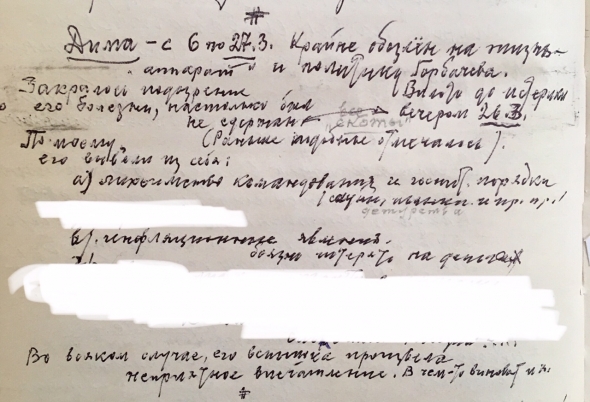 #
Дима – с 6 по 27.3. Крайне обозлён на жизнь –
"аппарат" и политику Горбачева.
Закралось подозрение Вплоть до истерики
о его болезни, настолько был все вечером 26.3.
не сдержан "скоты"
По моему (Раньше подобные отмечалось).
его вывели из себя:
а) лихоимство командования и порядки
(сауны, пьянки и пр. пр.!
б). инфляционные явления.
боязнь потерять на деньгах
Во всяком случае, его вспышка произвела
неприятное впечатление. В чем-то виноват и я.
#